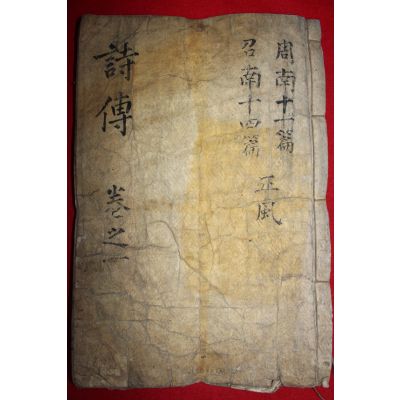 周南十一篇
召南十四篇
正風
詩傳
卷之一